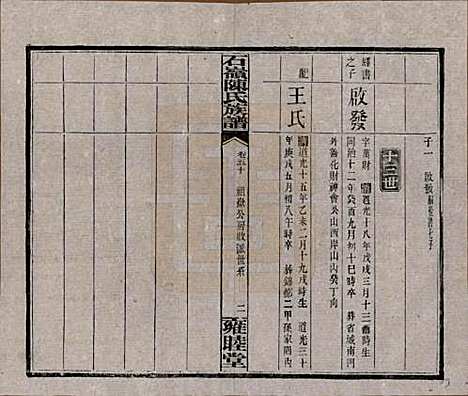 子一
十三世
經書之子
啟發
字萬財 道光十八年戊戌三月十三酉時生
同治十二年癸酉九月初十巳時卒 葬省城南河
外善化財神會公山西岸山內癸丁向
配
王氏
道光十五年乙未二月十九戌時生 道光三十
年庚戌五月初八午時卒 葬錦都二甲孫家園內
石嶺陳氏族譜
卷五十
祖嶽公房收派世系
二
雍睦堂